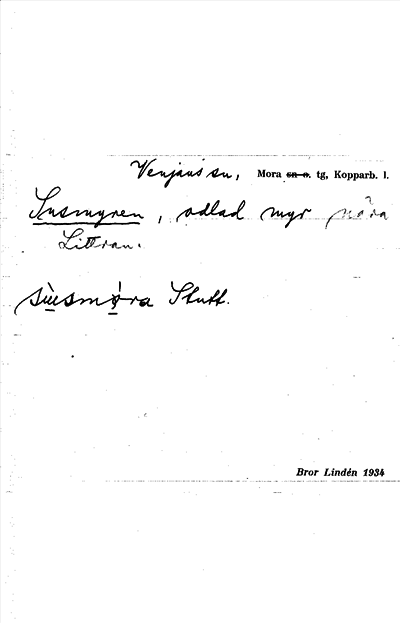 Venjans sn, Mora sn o. tg, Kopparb. l.
Susmyren, odlad myr nära
Littran.
Slutt.
Bror Lindén 1934